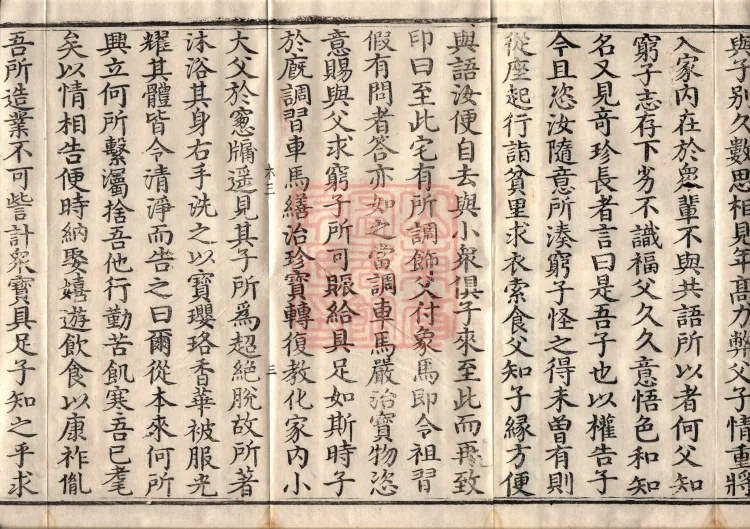 與子別久數思相見年高力弊父子情重將
入家內在於衆輩不與共語所以者何父知
窮子志存下劣不識福父久久意悟色和知
名又見奇珍長者言曰是吾子也以權告子
今且恣汝隨意所湊窮子怪之得未曾有則
從座起行詣貧里求衣索食父知子緣方便
與語汝便自去與小衆俱子來至此而再致
印曰至此宅有所調飾父付象馬即令粗習
假有問者答亦如之當調車馬嚴治寶物恣
意賜與父求窮子所可賑給具足如斯時子
於廐調習車馬繕治珍寶轉復教化家內小
木三
三
大父於窻牖遥見其子所爲超絕脫故所著
沐浴其身右手洗之以寶瓔珞香華被服光
耀其體皆令清淨而告之曰爾從本來何所
興立何所繫瀰捨吾他行勤苦飢寒吾已耄
矣以情相告便時納娶嬉遊飲食以康祚胤
吾所造業不可訾計衆寶具足子知之乎求